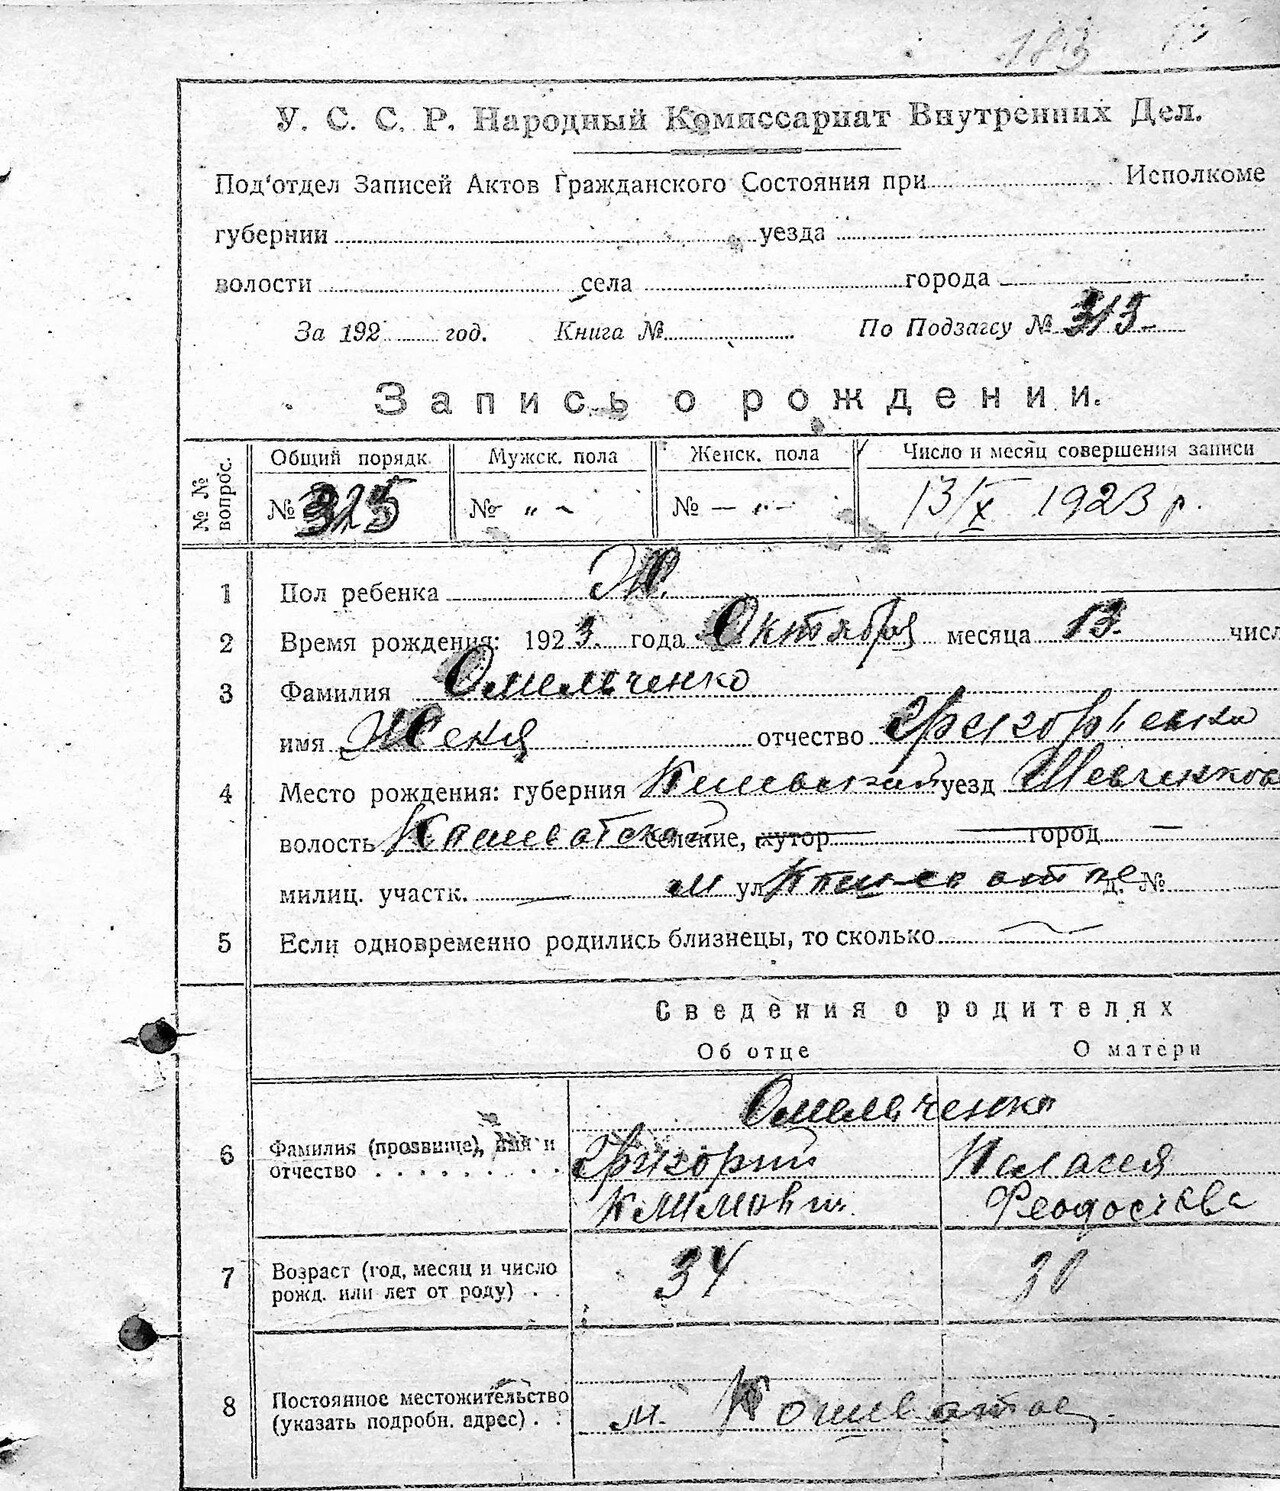 183
У. С. С. Р. Народный Комиссариат Внутренних Дел.
Под'отдел Записей Актов Гражданского Состояния при Исполкоме
губернии уезда
волости села города
За 192 год. Книга № По Подзагсу № 313
Запись о рождении.
№ № вопрос. Общий порядк. Мужск. пола Женск. пола Число и месяц совершения записи
№ 325 № „ - № - „ - 13/X 1923 р.
1 Пол ребенка Ж.
2 Время рождения: 1923. года Октября месяца 13. числ
3 Фамилия Омельченко
имя Женя отчество
4 Место рождения: губерния Киевской уезд Шевченков
волость селение, хутор город
милиц. участк. м ул. д. №
5 Если одновременно родились близнецы, то сколько
Сведения о родителях
Об отце О матери
Омельченко
6 Фамилия (прозвище), имя и Григорий Пелагея
отчество Климович Феодосіева
7 Возраст (год, месяц и число 34 30
рожд. или лет от роду)
8 Постоянное местожительство
(указать подробн. адрес) м. Кошеватое